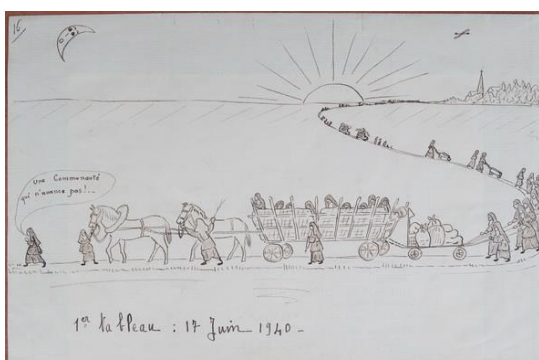 16
une Communauté
qui n'avance pas!...
1er tableau : 17 Juin 1940 -